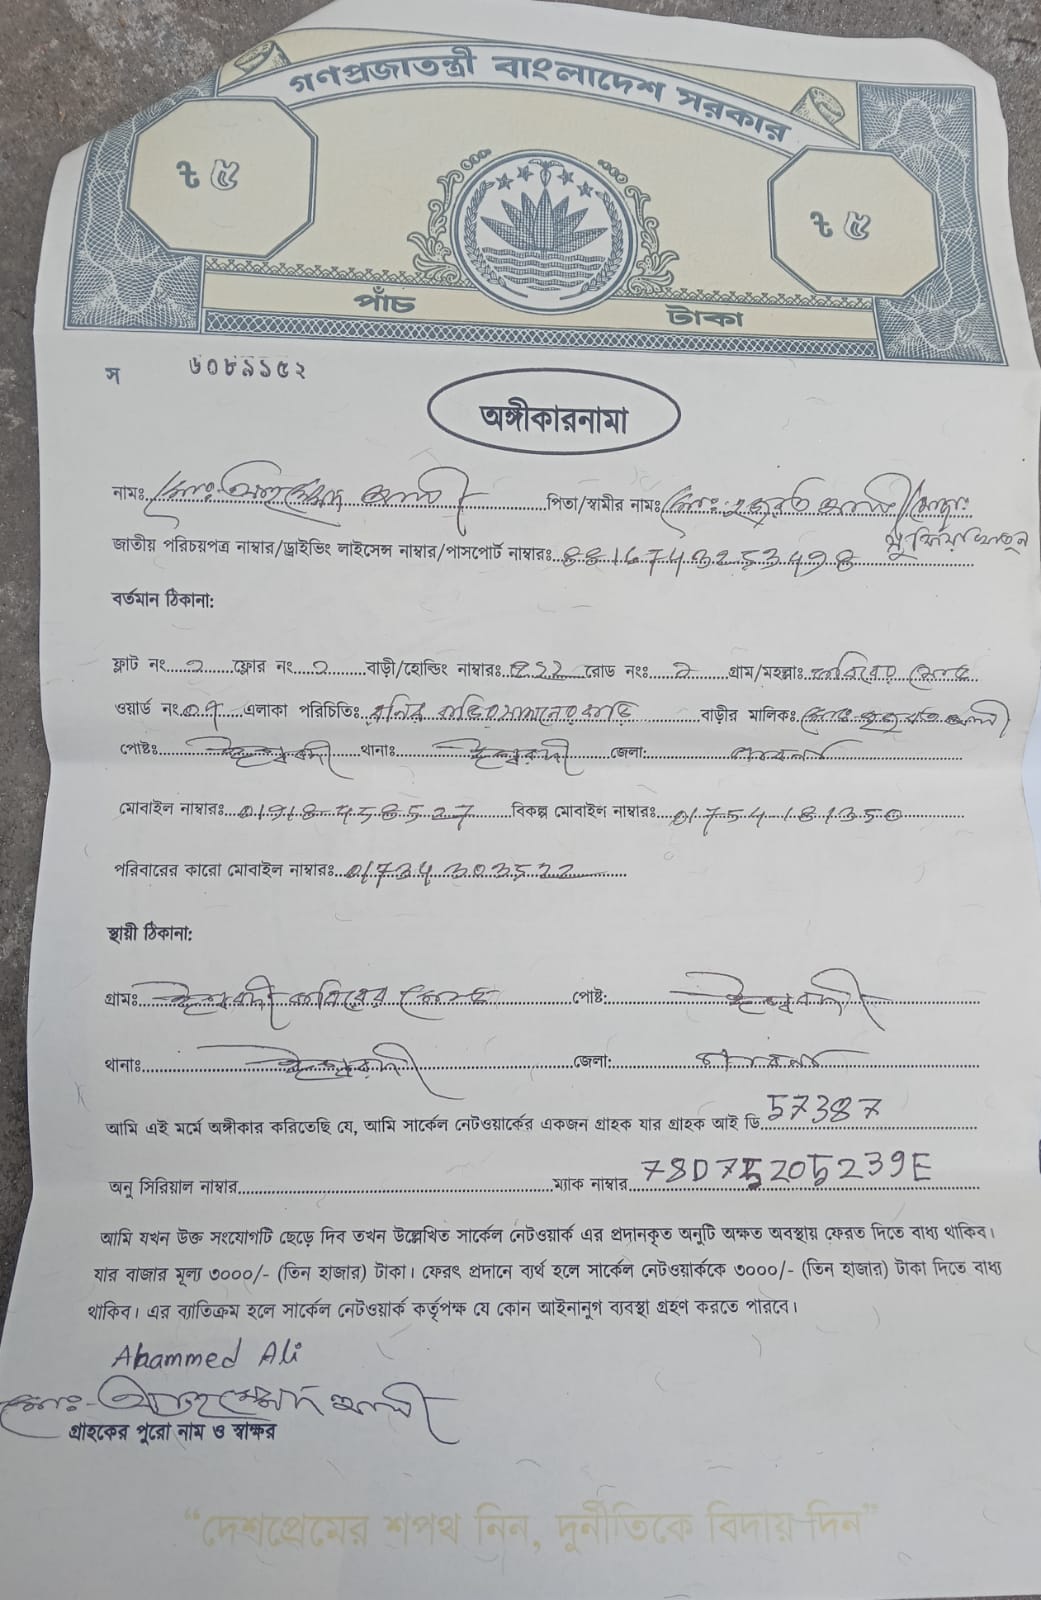 গণপ্রজাতন্ত্রী বাংলাদেশ সরকার
৳ ৫
৳ ৫
পাঁচ টাকা
স ৬০৮৯১৫২
অঙ্গীকারনামা
নামঃ মোঃ আহম্মেদ আলী পিতা/স্বামীর নামঃ মোঃ হজরত আলী/মোছাঃ
জাতীয় পরিচয়পত্র নাম্বার/ড্রাইভিং লাইসেন্স নাম্বার/পাসপোর্ট নাম্বারঃ
বর্তমান ঠিকানা:
ফ্লাট নং ফ্লোর নং বাড়ী/হোল্ডিং নাম্বারঃ রোড নংঃ গ্রাম/মহল্লাঃ
ওয়ার্ড নং ০৭ এলাকা পরিচিতিঃ বাড়ীর মালিকঃ মোঃ হজরত আলী
পোষ্টঃ ঈশ্বরদী থানাঃ ঈশ্বরদী জেলা: পাবনা
মোবাইল নাম্বারঃ বিকল্প মোবাইল নাম্বারঃ 01754181350
পরিবারের কারো মোবাইল নাম্বারঃ 01734303522
স্থায়ী ঠিকানা:
গ্রামঃ ঈশ্বরদী পোষ্ট: ঈশ্বরদী
থানাঃ ঈশ্বরদী জেলা: পাবনা
আমি এই মর্মে অঙ্গীকার করিতেছি যে, আমি সার্কেল নেটওয়ার্কের একজন গ্রাহক যার গ্রাহক আই ডি 57387
অনু সিরিয়াল নাম্বার ম্যাক নাম্বার 78D75205239E
আমি যখন উক্ত সংযোগটি ছেড়ে দিব তখন উল্লেখিত সার্কেল নেটওয়ার্ক এর প্রদানকৃত অনুটি অক্ষত অবস্থায় ফেরত দিতে বাধ্য থাকিব।
যার বাজার মূল্য ৩০০০/- (তিন হাজার) টাকা। ফেরৎ প্রদানে ব্যর্থ হলে সার্কেল নেটওয়ার্ককে ৩০০০/- (তিন হাজার) টাকা দিতে বাধ্য
থাকিব। এর ব্যাতিক্রম হলে সার্কেল নেটওয়ার্ক কর্তৃপক্ষ যে কোন আইনানুগ ব্যবস্থা গ্রহণ করতে পারবে।
Ahammed Ali
মোঃ আহম্মেদ আলী
গ্রাহকের পুরো নাম ও স্বাক্ষর
“দেশপ্রেমের শপথ নিন, দুর্নীতিকে বিদায় দিন”